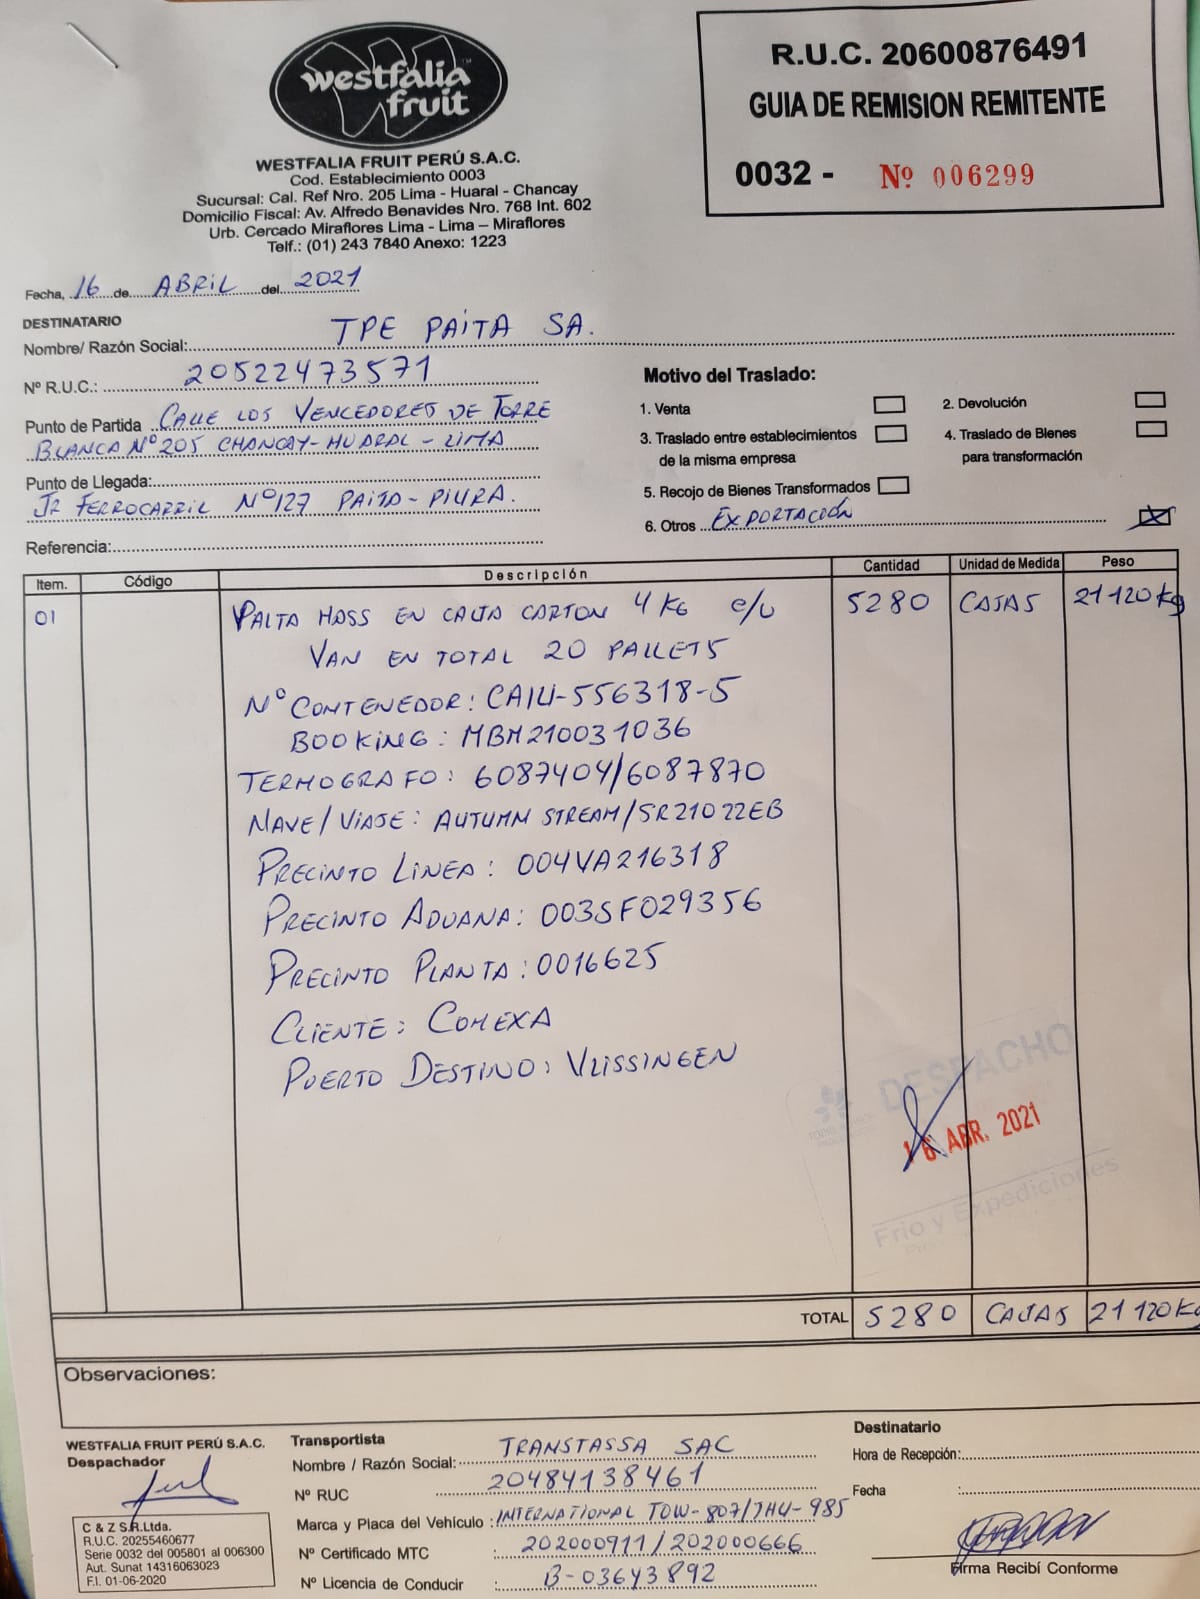 westfalia
fruit
WESTFALIA FRUIT PERÚ S.A.C.
Cod. Establecimiento 0003
Sucursal: Cal. Ref Nro. 205 Lima - Huaral - Chancay
Domicilio Fiscal: Av. Alfredo Benavides Nro. 768 Int. 602
Urb. Cercado Miraflores Lima - Lima – Miraflores
Telf.: (01) 243 7840 Anexo: 1223
R.U.C. 20600876491
GUIA DE REMISION REMITENTE
0032 - Nº 006299
Fecha, 16 de ABRIL del 2021
DESTINATARIO
Nombre/ Razón Social: TPE PAITA SA.
Nº R.U.C.: 20522473571
Punto de Partida CALLE LOS VENCEDORES DE TORRE
BLANCA Nº 205 CHANCAY-HUARAL-LIMA
Punto de Llegada:
JR FERROCARRIL Nº127 PAITA-PIURA.
Referencia:
Motivo del Traslado:
1. Venta
2. Devolución
3. Traslado entre establecimientos
de la misma empresa
4. Traslado de Bienes
para transformación
5. Recojo de Bienes Transformados
6. Otros EXPORTACIÓN
Item. Código Descripción Cantidad Unidad de Medida Peso
01 PALTA HASS EN CAJA CARTON 4 KG c/u 5280 CAJAS 21120 Kg
VAN EN TOTAL 20 PALLETS
Nº CONTENEDOR: CAIU-556318-5
BOOKING: MBM210031036
TERMOGRAFO: 6087404/6087870
NAVE/VIAJE: AUTUMN STREAM/SR21022EB
PRECINTO LINEA: 004VA216318
PRECINTO ADUANA: 003SF029356
PRECINTO PLANTA: 0016625
CLIENTE: COMEXA
PUERTO DESTINO: VLISSINGEN
DESPACHO
16 ABR. 2021
Frio y Expediciones
TOTAL 5280 CAJAS 21120 Kg
Observaciones:
WESTFALIA FRUIT PERÚ S.A.C.
Despachador
C & Z S.R.Ltda.
R.U.C. 20255460677
Serie 0032 del 005801 al 006300
Aut. Sunat 14316063023
F.I. 01-06-2020
Transportista
Nombre / Razón Social: TRANSTASSA SAC
Nº RUC 20484138461
Marca y Placa del Vehículo : INTERNATIONAL TOW-807/THU-985
Nº Certificado MTC : 202000911/202000666
Nº Licencia de Conducir : B-03643892
Destinatario
Hora de Recepción:
Fecha :
Firma Recibí Conforme